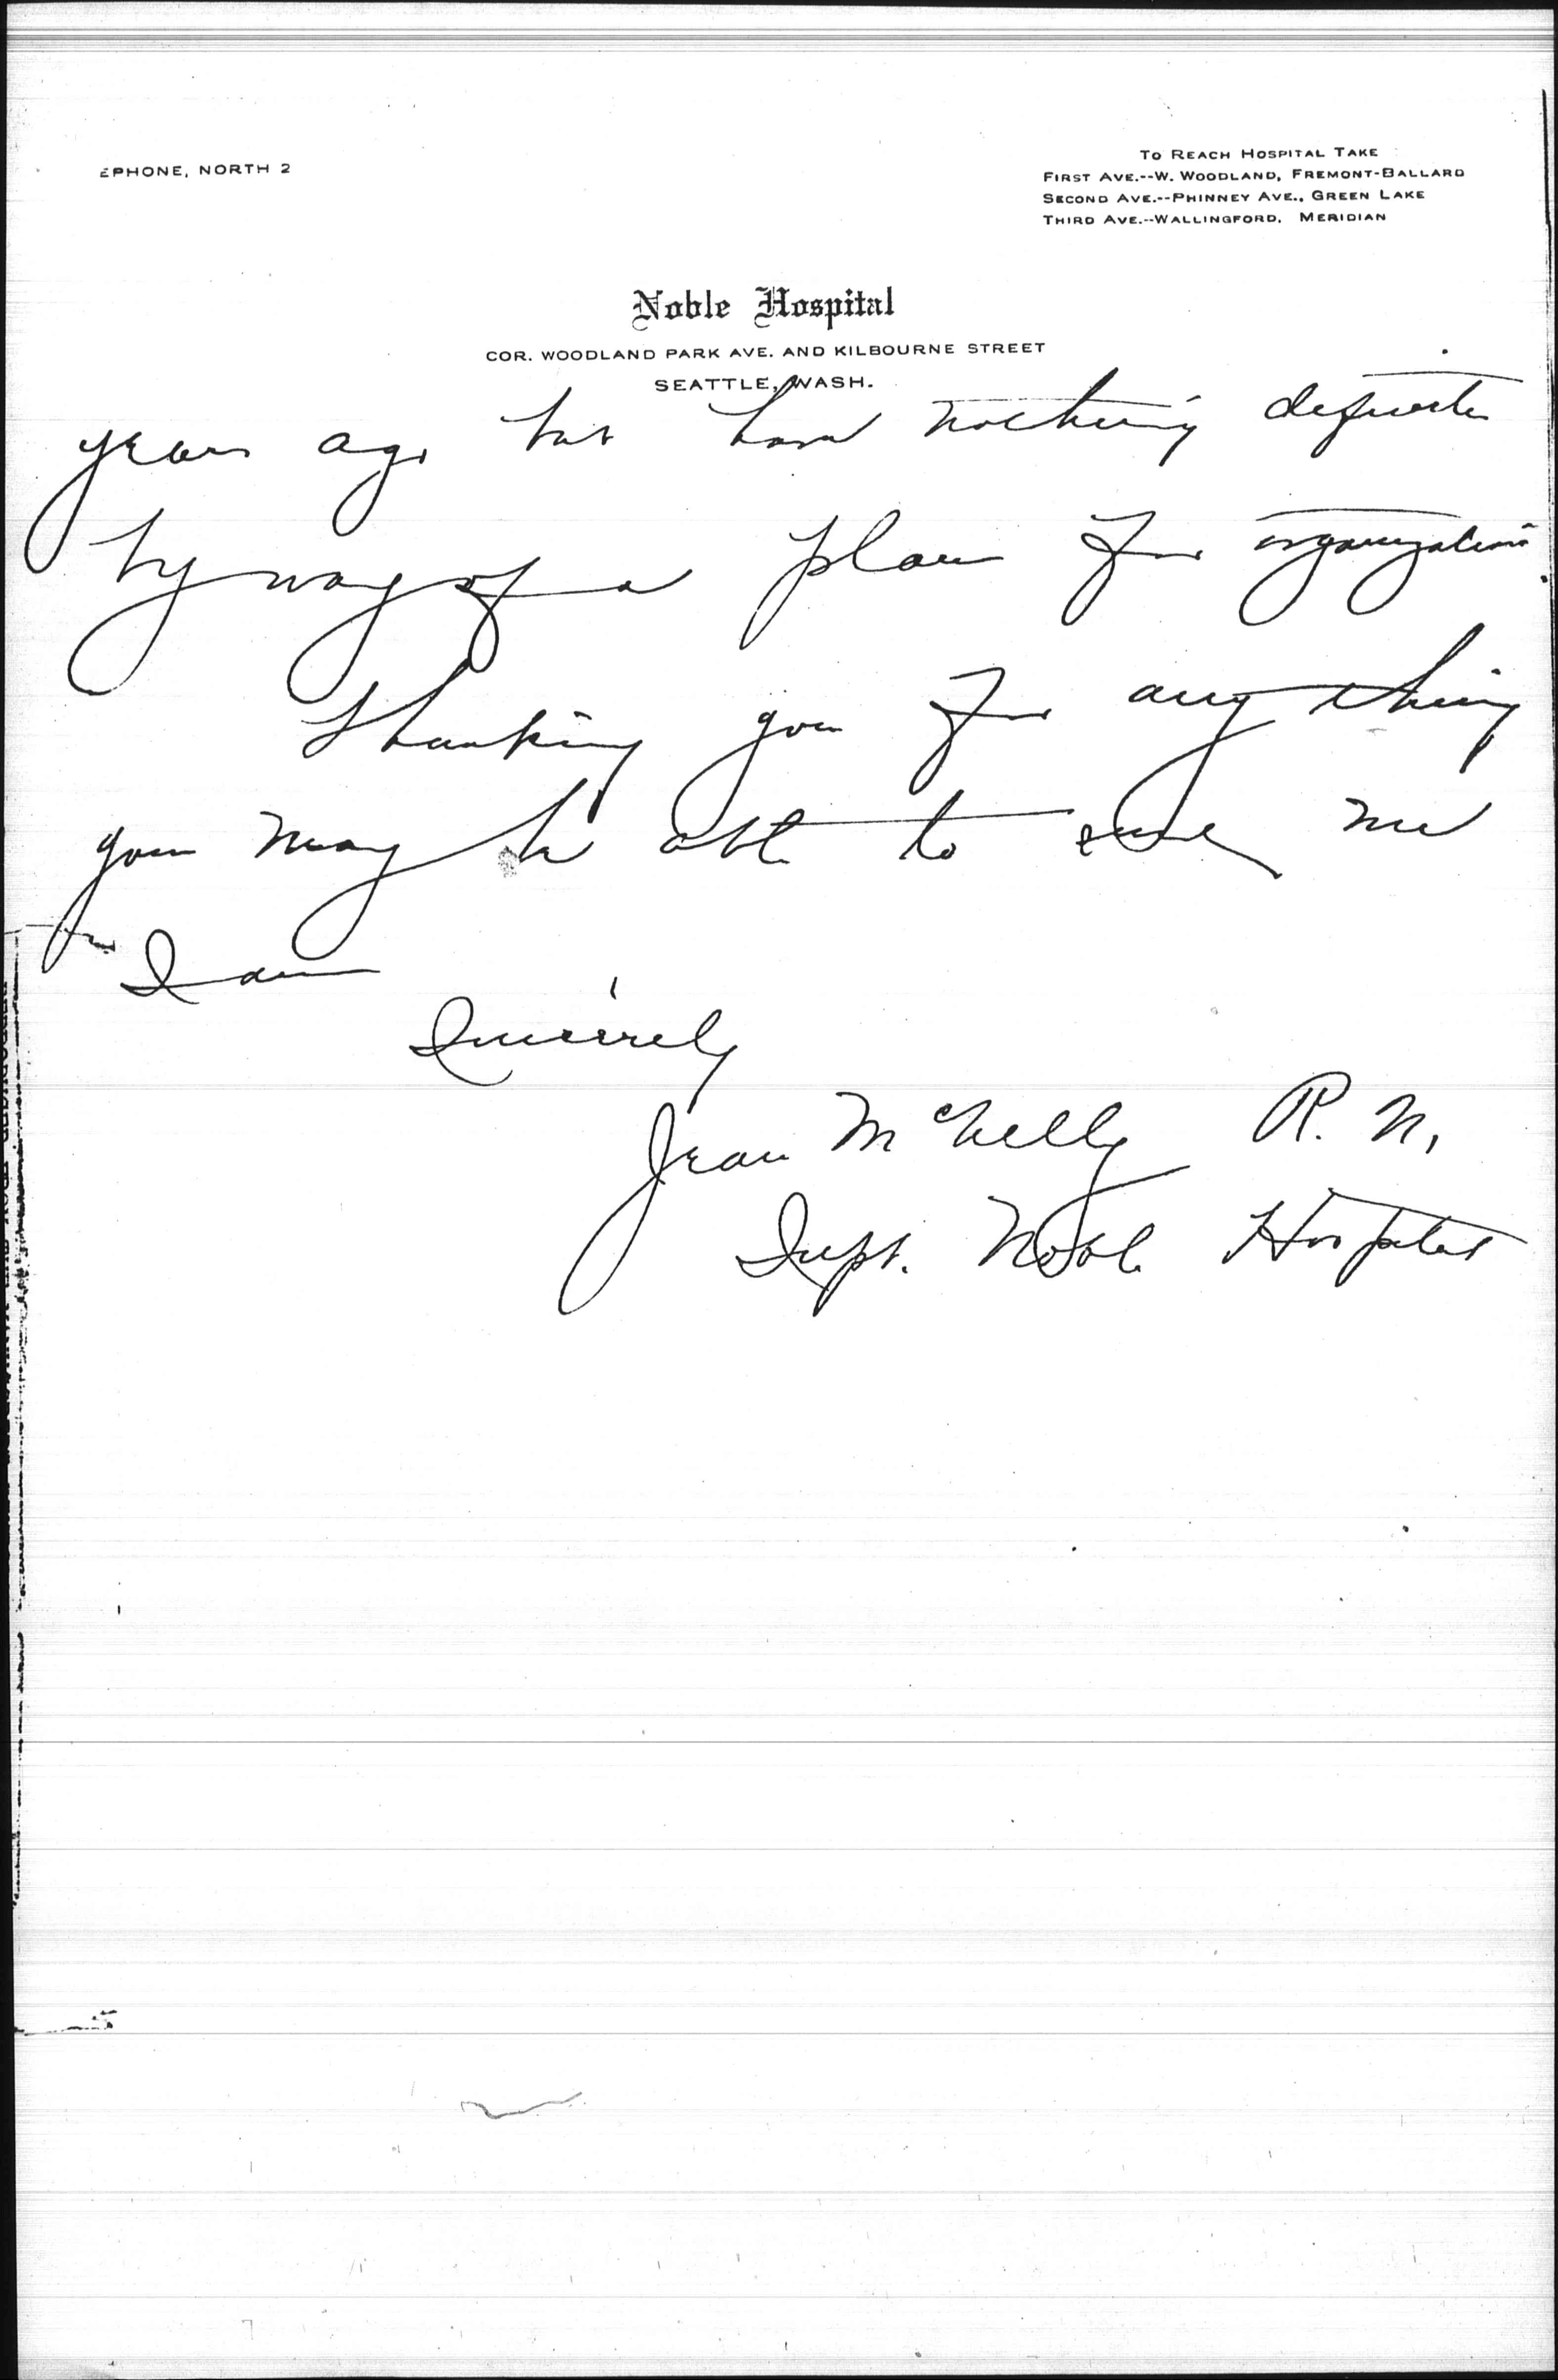 EPHONE, NORTH 2
TO REACH HOSPITAL TAKE
FIRST AVE.--W. WOODLAND, FREMONT-BALLARD
SECOND AVE.--PHINNEY AVE., GREEN LAKE
THIRD AVE.--WALLINGFORD, MERIDIAN
Noble Hospital
COR. WOODLAND PARK AVE. AND KILBOURNE STREET
SEATTLE, WASH.
years ago but have nothing definite
by way of a plan for organization.
Thanking you for anything
you may be able to send me
I am
Sincerely
Jean R. N.
Supt. Noble Hospital